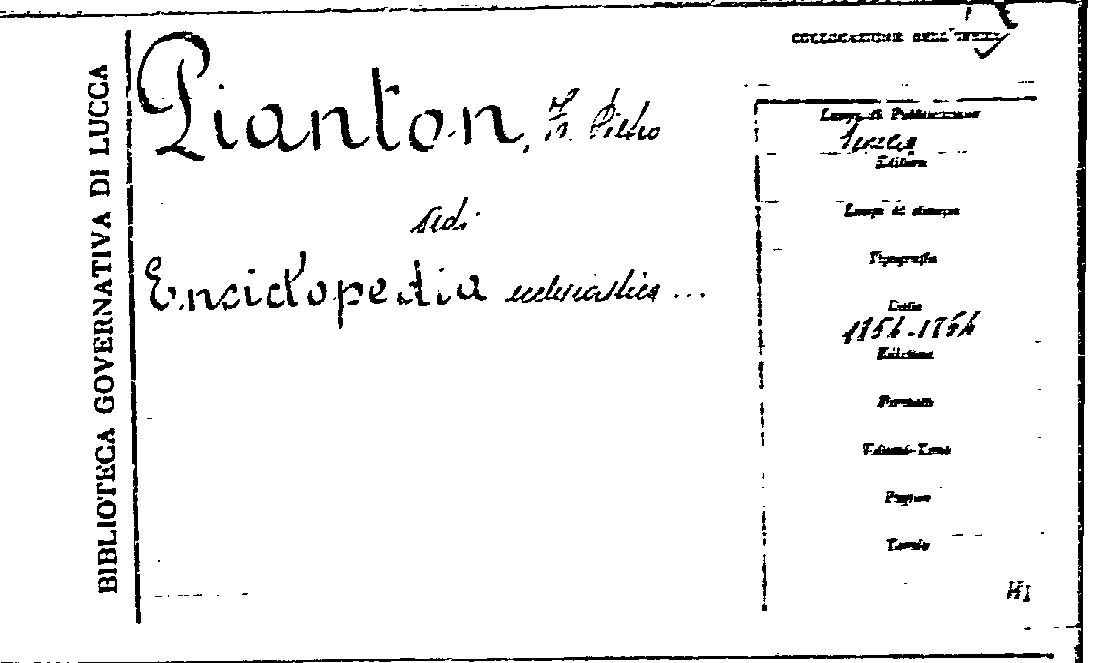 BIBLIOTECA GOVERNATIVA DI LUCCA
COLLOCAZIONE DELL'OPERA
Pianton, Pietro
vedi
Enciclopedia ecclesiastica ...
Luogo di Pubblicazione
Venezia
Editore
Luogo di stampa
Tipografia
Data
1854-1864
Edizione
Formato
Volumi-Tomi
Pagine
Tavole